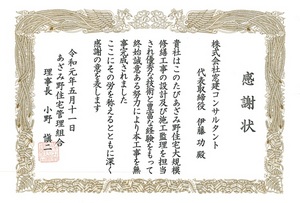 感謝状
株式会社宏建コンサルタント
代表取締役 伊藤功殿
貴社はこのたびあざみ野住宅大規模
修繕工事の設計及び施工監理を担当
され優秀な技術と豊富な経験をもって
終始誠意ある努力により本工事を無
事完成されました
ここにその労を称えるとともに深く
感謝の意を表します
令和元年五月十一日
あざみ野住宅管理組合
理事長 小野慎二